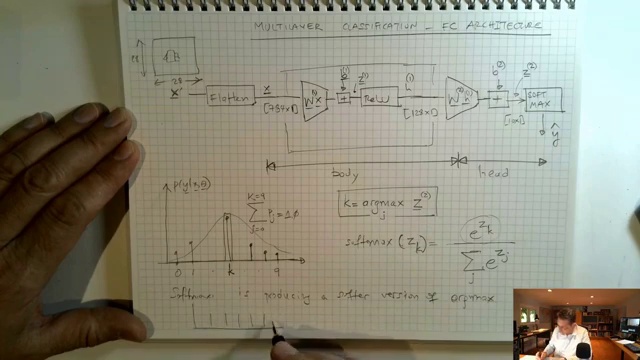 MULTILAYER CLASSIFICATION - FC ARCHITECTURE
28
28
x
Flatten
x
[784x1]
W⁽¹⁾x
b⁽¹⁾
+
z⁽¹⁾
ReLU
h⁽¹⁾
[128x1]
W⁽²⁾h⁽¹⁾
b⁽²⁾
+
z⁽²⁾
[10x1]
SOFT
MAX
ŷ
body
head
p(y|x,θ)
k=9
∑ p_j = 1.0
j=0
0 1 k 9
k = argmax_j z⁽²⁾
softmax (z_k) = e^{z_k} / ∑_j e^{z_j}
Softmax is producing a softer version of argmax